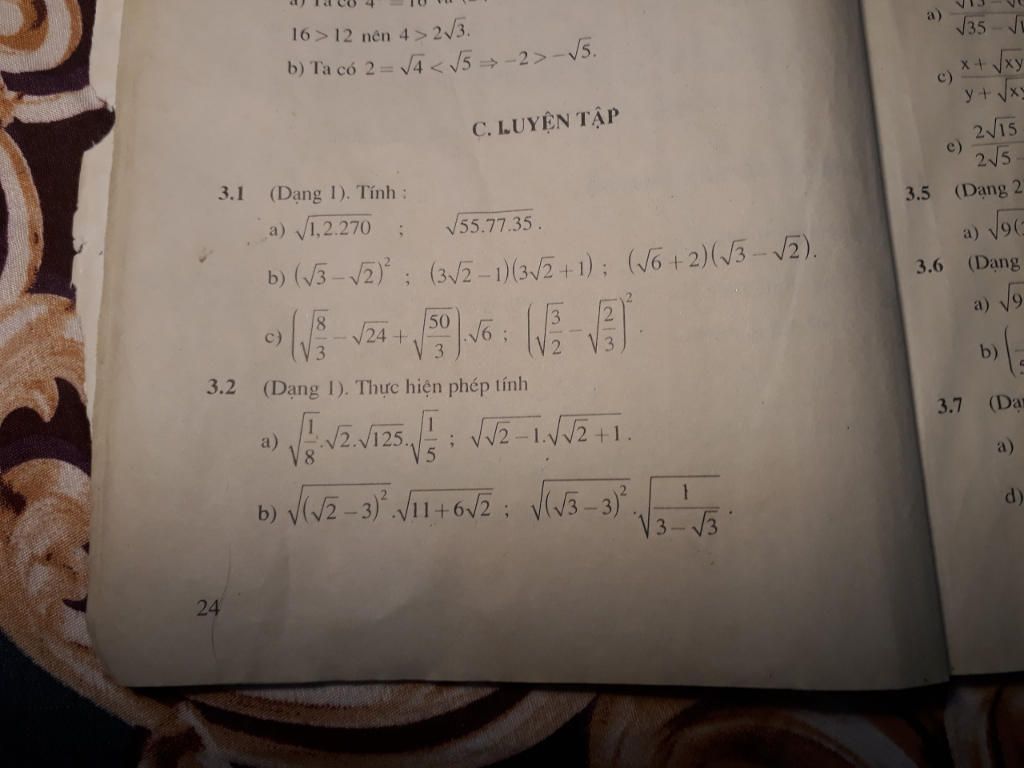 16 > 12 nên 4 > 2√3.
b) Ta có 2 = √4 < √5 ⇒ −2 > −√5.
C. LUYỆN TẬP
3.1 (Dạng 1). Tính :
a) √(1,2.270) ; √(55.77.35) .
b) (√3 − √2)² ; (3√2 − 1)(3√2 + 1) ; (√6 + 2)(√3 − √2).
c) (√(8/3) − √24 + √(50/3)).√6 ; (√(3/2) − √(2/3))² .
3.2 (Dạng 1). Thực hiện phép tính
a) √(1/8).√2.√125.√(1/5) ; √(√2 − 1).√(√2 + 1) .
b) √((√2 − 3)²).√(11 + 6√2) ; √((√3 − 3)²).√(1/(3 − √3)) .
24
a)
√35 −
c) x + √xy
y + √xy
e) 2√15
2√5 −
3.5 (Dạng 2
a) √9(
3.6 (Dạng
a) √9
b) (
3.7
a)
d)